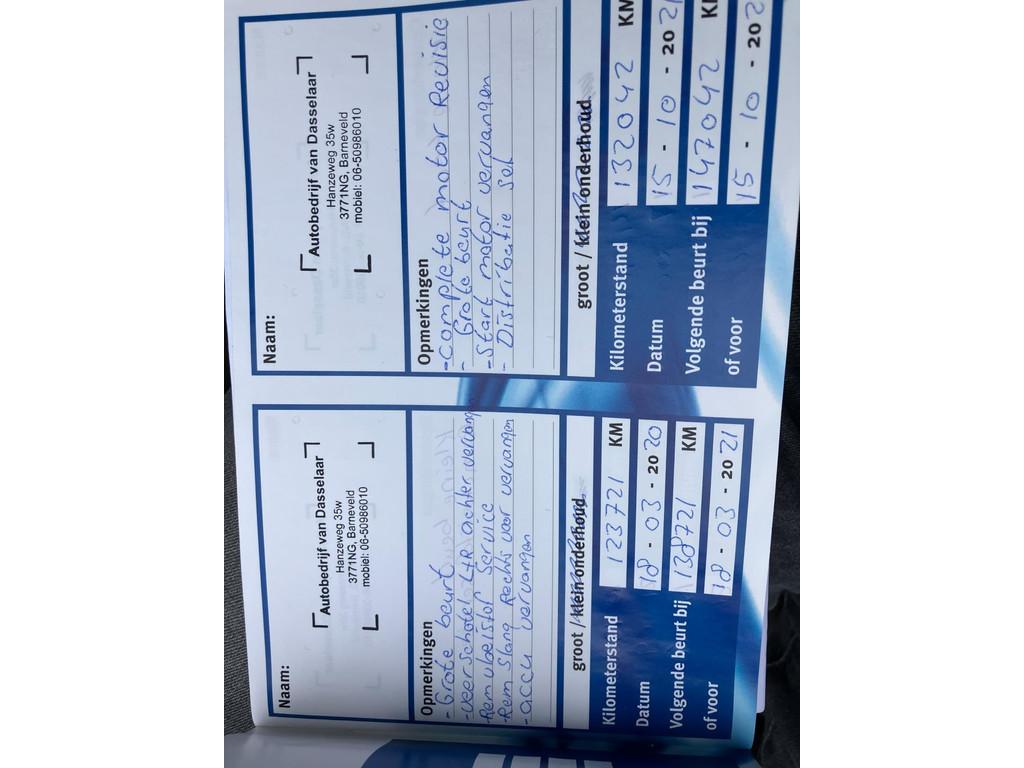 Naam:
Autobedrijf van Dasselaar
Hanzeweg 35w
3771NG, Barneveld
mobiel: 06-50986010
Opmerkingen
- Grote beurt
- veerschotel L+R achter vervang
- Remvloeistof Service
- Rem slang Rechts voor vervangen
- accu vervangen
groot / klein onderhoud
Kilometerstand 123721 KM
Datum 18 - 03 - 2020
Volgende beurt bij 138721 KM
of voor 18 - 03 - 2021
Naam:
Autobedrijf van Dasselaar
Hanzeweg 35w
3771NG, Barneveld
mobiel: 06-50986010
Opmerkingen
- complete motor Revisie
- Grote beurt
- Start motor vervangen
- Distributie set
groot / klein onderhoud
Kilometerstand 132042 KM
Datum 15 - 10 - 2021
Volgende beurt bij 147042
of voor 15 - 10 - 202